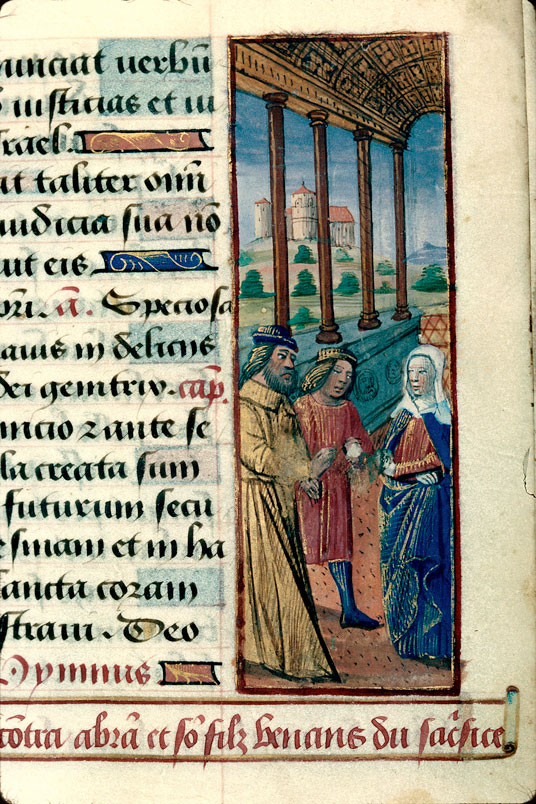 nunciat uerbū
iusticias et iu
rael.
it taliter om̄i
iudicia sua nō
uit eis
ōri. a. Speciosa
auis in delicijs
dei genitrix. cap̄.
nicio z ante se
la creata sum
futurum secu
esinam et in ha
sancta coram
straui. Deo
Hymnus
cōtra abrā et sō filz venans du sac̄fice